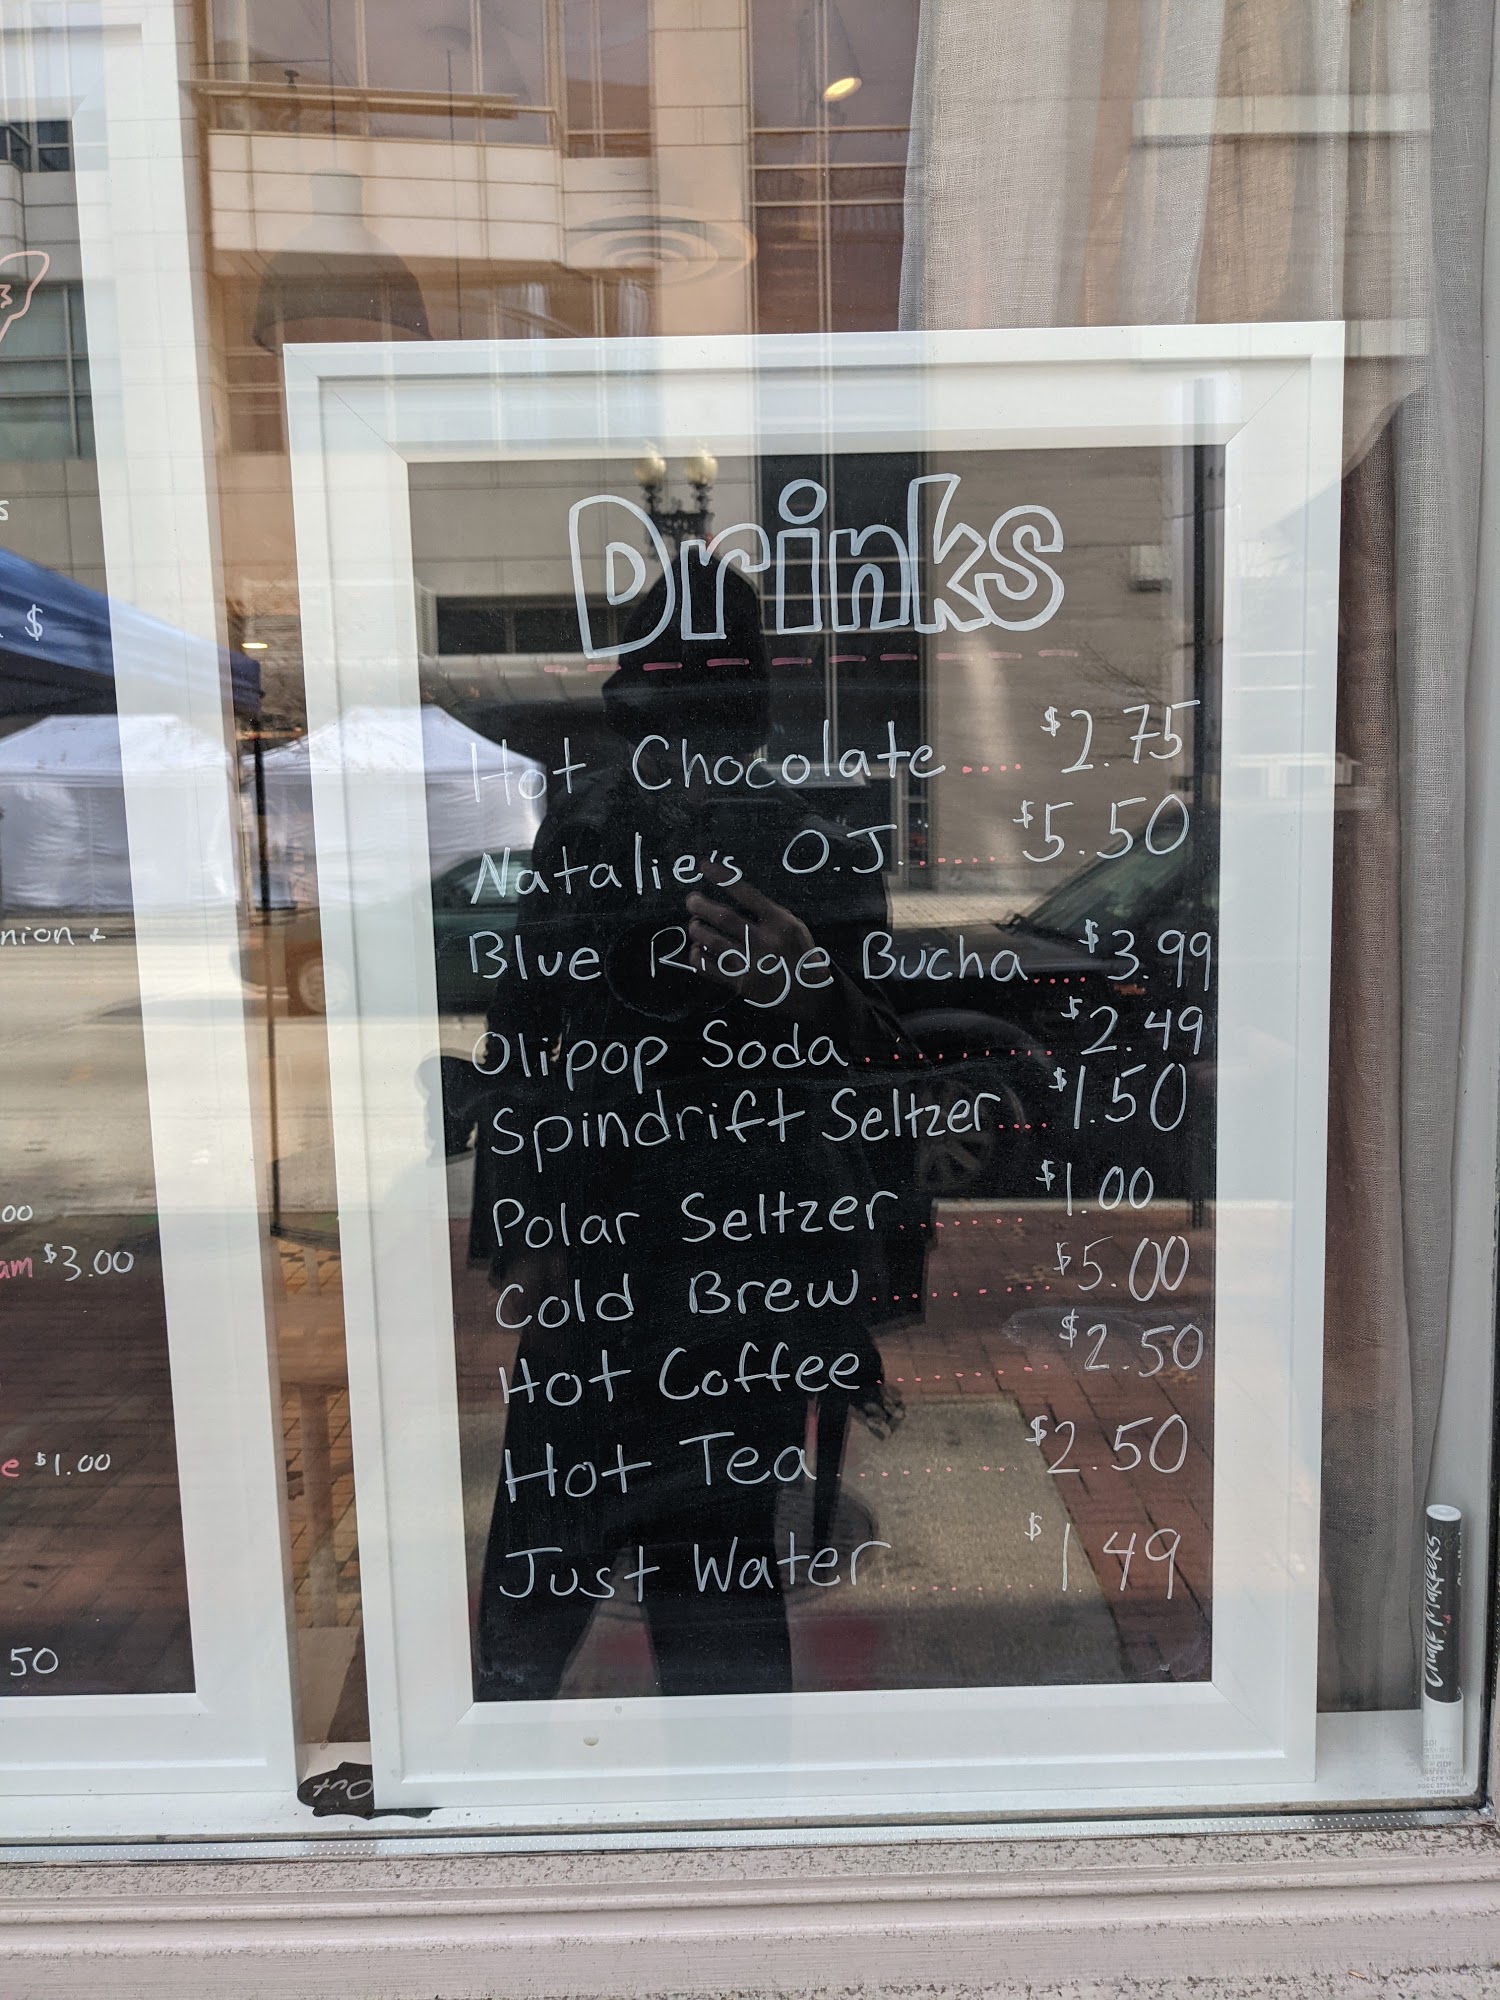 Drinks
Hot Chocolate.... $2.75
Natalie's O.J...... $5.50
Blue Ridge Bucha.... $3.99
Olipop Soda.......... $2.49
Spindrift Seltzer.... $1.50
Polar Seltzer....... $1.00
Cold Brew.......... $5.00
Hot Coffee.......... $2.50
Hot Tea.......... $2.50
Just Water.......... $1.49
$
nion +
00
am $3.00
e $1.00
50
Out
Chalk Markers